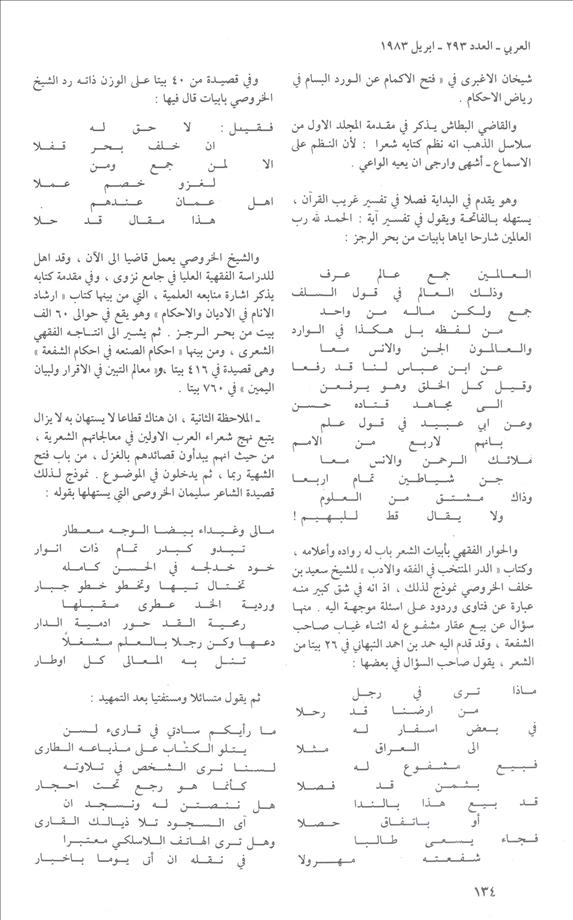 العربي - العدد ٢٩٣ - ابريل ١٩٨٣
شيخان الاغبرى في « فتح الاكمام عن الورد البسام في
رياض الاحكام .
والقاضي البطاش يذكر في مقدمة المجلد الاول من
سلاسل الذهب انه نظم كتابه شعرا : لأن النظم على
الاسماع - أشهى وارجى ان يعيه الواعي .
وهو يقدم في البداية فصلا في تفسير غريب القرآن ،
يستهله بالفاتحة ويقول في تفسير آية : الحمد لله رب
العالمين شارحا اياها بابيات من بحر الرجز :
العالمين جمع عالم عرف
وذلك العالم في قول السلف
جمع ولكن ماله من واحد
من لفظه بل هكذا في الوارد
والعالمون الجن والانس معا
عن ابن عباس لنا قد رفعا
وقيل كل الخلق وهو يرفعن
الى مجاهد قتاده حسن
وعن ابي عبيد في قول علم
بانهم لاربع من الامم
ملائك الرحمن والانس معا
جن شياطين تمام اربعا
وذاك مشتق من العلوم
ولا يقال قط للبهيم !
والحوار الفقهي بأبيات الشعر باب له رواده وأعلامه ،
وكتاب « الدر المنتخب في الفقه والادب » للشيخ سعيد بن
خلف الخروصي نموذج لذلك ، اذ انه في شق كبير منه
عبارة عن فتاوى وردود على اسئلة موجهة اليه . منها
سؤال عن بيع عقار مشفوع له اثناء غياب صاحب
الشفعة ، وقد قدم اليه حمد بن احمد النبهاني في ٢٦ بيتا من
الشعر ، يقول صاحب السؤال في بعضها :
ماذا ترى في رجل
من ارضنا قد رحلا
في بعض اسفار له
الى العراق مثلا
فبيع مشفوع له
بثمن قد فصلا
قد بيع هذا بالندا
أو باتفاق حصلا
فجاء يسعى طالبا
شفعته مهرولا
وفي قصيدة من ٤٠ بيتا على الوزن ذاته رد الشيخ
الخروصي بابيات قال فيها :
فقيل : لا حق له
ان خلف بحر قفلا
الا لمن جمع ومن
لغزو خصم عملا
اهل عمان عندهم .
هذا مقال قد حلا
والشيخ الخروصي يعمل قاضيا الى الآن ، وقد اهل
للدراسة الفقهية العليا في جامع نزوى ، وفي مقدمة كتابه
يذكر اشارة منابعه العلمية ، التي من بينها كتاب « ارشاد
الانام في الاديان والاحكام » وهو يقع في حوالى ٦٠ الف
بيت من بحر الرجز . ثم يشير الى انتاجه الفقهي
الشعرى ، ومن بينها « احكام الصنعه في احكام الشفعة »
وهى قصيدة في ٤١٦ بيتا ،و« معالم التبين في الاقرار ولبيان
اليمين » في ٧٦٠ بيتا .
ـ الملاحظة الثانية ، ان هناك قطاعا لا يستهان به لا يزال
يتبع نهج شعراء العرب الاولين في معالجاتهم الشعرية ،
من حيث انهم يبدأون قصائدهم بالغزل ، من باب فتح
الشهية ربما ، ثم يدخلون في الموضوع . نموذج لذلك
قصيدة الشاعر سليمان الخروصى التي يستهلها بقوله :
مالى وغيداء بيضا الوجه معطار
تبدو كبدر تمام ذات انوار
خود خدلجه في الحسن كامله
تختال تيها وتخطو خطو جبار
وردية الخد عطرى مقبلها
رمحية القد حور ادمية الدار
دعها وكن رجلا بالعلم مشغلاً
تنل به المعالى كل اوطار
ثم يقول متسائلا ومستفتيا بعد التمهيد :
ما رأيكم سادتي في قارىء لسن
يتلو الكتاب على مذياعه الطارى
لسنا نرى الشخص في تلاوته
كأنما هو رجع تحت احجار
هل ننصتن له ونسجد ان
آى السجود تلا ذيالك القارى
وهل ترى الهاتف اللاسلكي معتبرا
في نقله ان أتى يوما باخبار
١٣٤